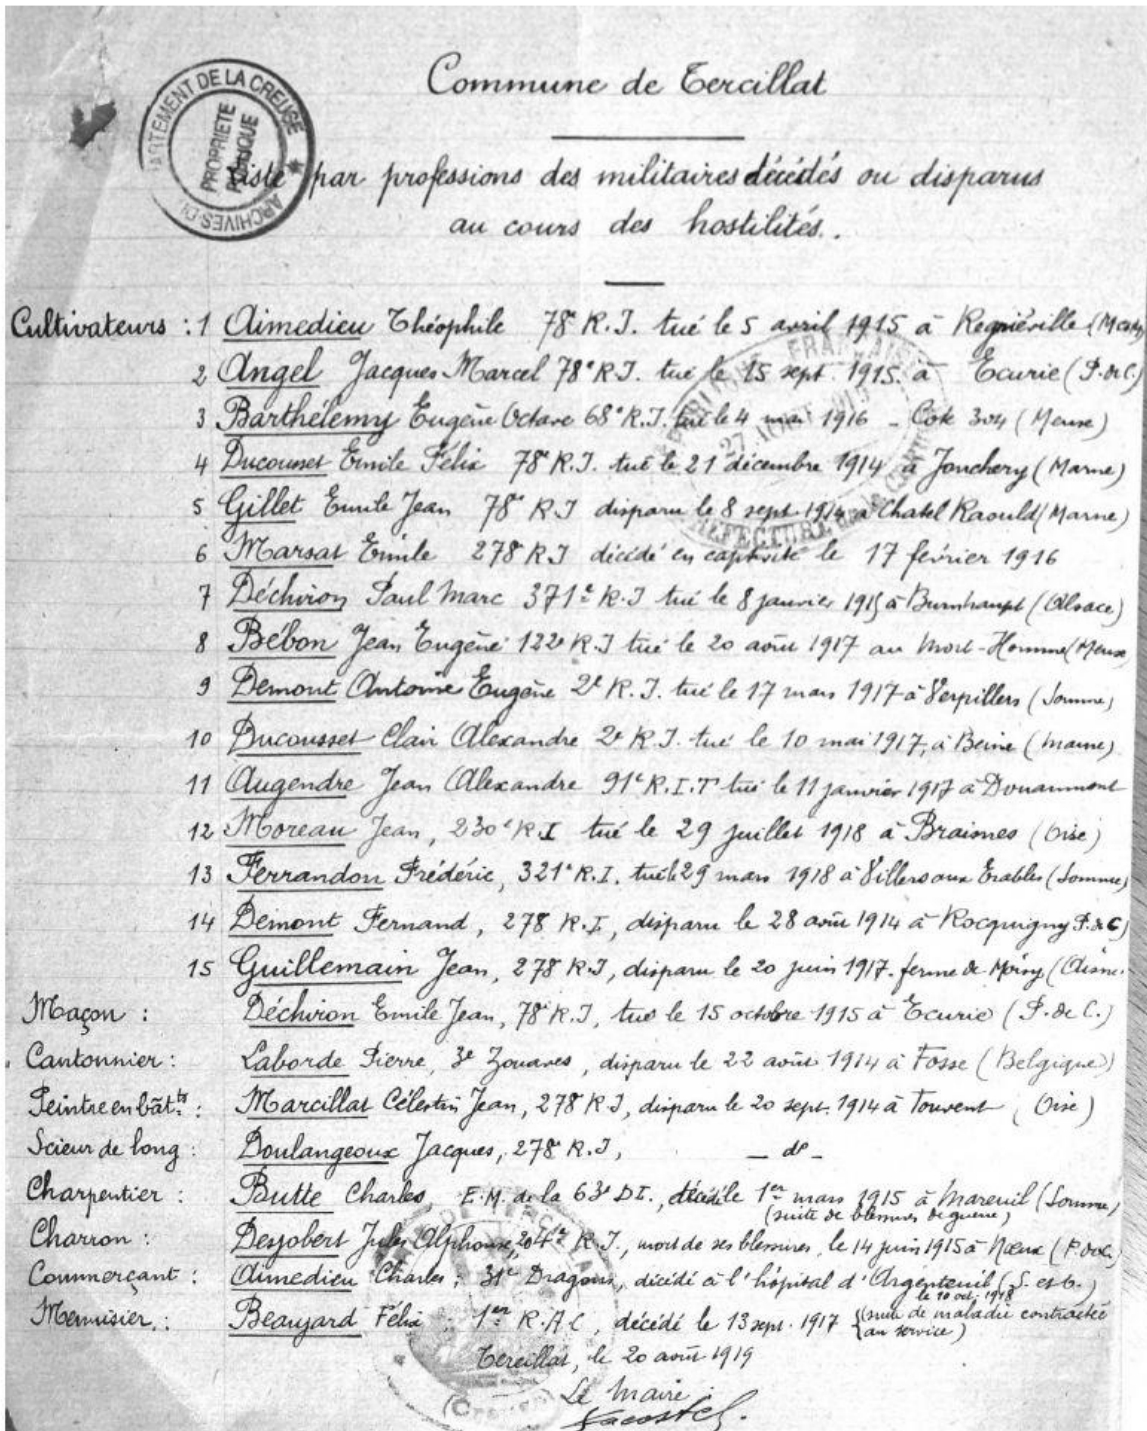 Commune de Tercillat
ARCHIVES DU DÉPARTEMENT DE LA CREUSE
PROPRIETE
PUBLIQUE
Liste par professions des militaires décédés ou disparus
au cours des hostilités.
Cultivateurs : 1 Aimedieu Théophile 78e R.I. tué le 5 avril 1915 à Regniéville
2 Angel Jacques Marcel 78e R.I. tué le 15 sept. 1915. à Ecurie (P. de C.)
3 Barthélemy Eugène Octave 68e R.I. tué le 4 mai 1916 - Cote 304 (Meuse)
4 Ducousset Emile Félix 78e R.I. tué le 21 décembre 1914 à Jonchery (Marne)
5 Gillet Emile Jean 78e R.I disparu le 8 sept. 1914 à Chatel Raould (Marne)
6 Marsat Emile 278 R.I décédé en captivité le 17 février 1916
7 Déchiron Paul Marc 371e R.I tué le 8 janvier 1915 à Burnhaupt (Alsace)
8 Bébon Jean Eugène 122e R.I tué le 20 août 1917 au Mort-Homme (Meuse
9 Demont Antoine Eugène 2e R.I. tué le 17 mars 1917 à Verpillers (Somme)
10 Ducousset Clair Alexandre 2e R.I. tué le 10 mai 1917, à Beine (Marne)
11 Augendre Jean Alexandre 91e R.I.T tué le 11 janvier 1917 à Douaumont
12 Moreau Jean, 230e R.I tué le 29 juillet 1918 à Braisnes (Oise)
13 Ferrandon Frédéric, 321e R.I. tué le 29 mars 1918 à Villers aux Erables (Somme)
14 Demont Fernand, 278 R.I, disparu le 28 août 1914 à Rocquigny P. de C)
15 Guillemain Jean, 278 R.I, disparu le 20 juin 1917. ferme de Moisy (Aisne.
Maçon : Déchiron Emile Jean, 78e R.I, tué le 15 octobre 1915 à Ecurie (P. de C.)
Cantonnier : Laborde Pierre, 3e Zouaves, disparu le 22 août 1914 à Fosse (Belgique)
Peintre en bâtts : Marcillat Célestin Jean, 278 R.I, disparu le 20 sept. 1914 à Touvent (Oise)
Scieur de long : Boulangeoux Jacques, 278e R.I, - do -
Charpentier : Butte Charles, E.M. de la 63e D.I., décédé le 1er mars 1915 à Mareuil (Somme)
(suite de blessures de guerre)
Charron : Desjobert Jules Alphonse, 204e R.I., mort de ses blessures, le 14 juin 1915 à Nœux (P. de C.
Commerçant : Aimedieu Charles, 31e Dragons, décédé à l'hôpital d'Argenteuil (S. et O.)
le 10 oct. 1918
Menuisier : Beaujard Félix, 1er R.A.C, décédé le 13 sept. 1917 (suite de maladie contractée
au service)
Tercillat, le 20 août 1919
Le Maire :